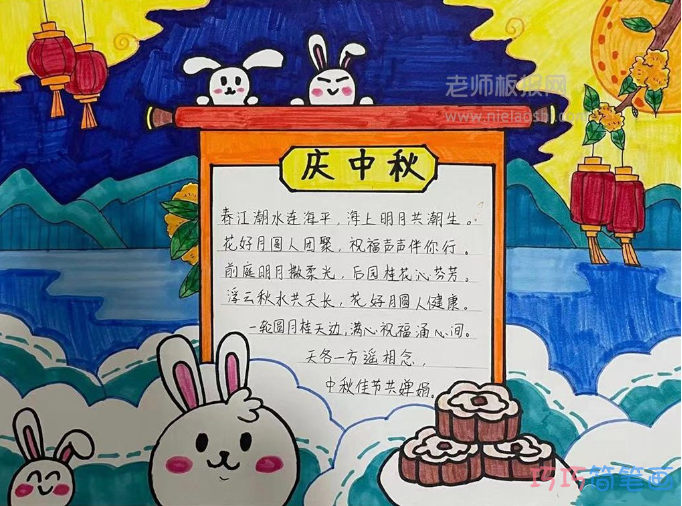 老师板报网
庆中秋
春江潮水连海平，海上明月共潮生。
花好月圆人团聚，祝福声声伴你行。
前庭明月撒柔光，后园桂花沁芬芳。
浮云秋水共天长，花好月圆人健康。
一轮圆月桂天边，满心祝福涌心间。
天各一方遥相念，
中秋佳节共婵娟。
巧巧简笔画